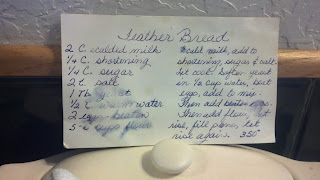 Feather Bread
2 C. scalded milk
1/4 C. shortening
1/4 C. sugar
2 t. salt
1 Tb.
1/2 C. water
2 eggs beaten
5-6 cups flour
Scald milk, add to
shortening, sugar & salt.
Let cool. Soften yeast
in 1/2 cup water, beat
eggs, add to mix.
Then add
Then add flour, let
rise, fill pans, let
rise again. 350°